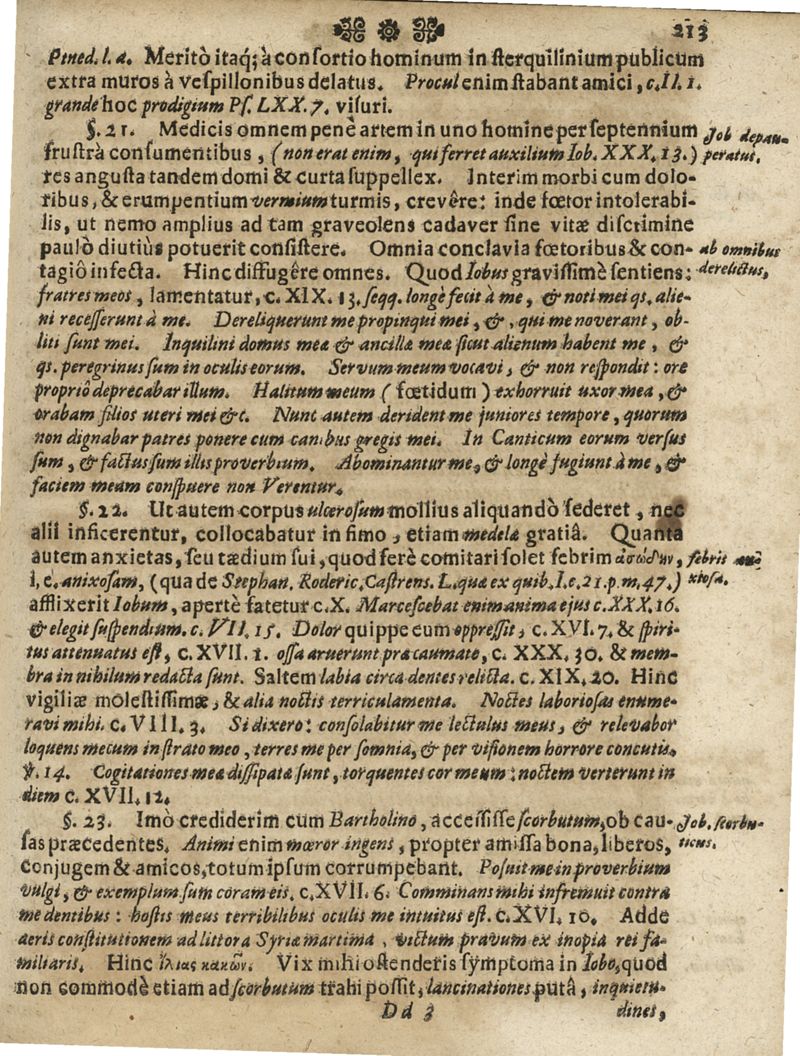 213
Pined. l. d. Meritò itaq; à consortio hominum in sterquilinium publicum
extra muros à vespillonibus delatus. Procul enim stabant amici, c. II. 1.
grande hoc prodigium Ps. LXX. 7. visuri.
§. 21. Medicis omnem penè artem in uno homine per septennium
Job depau-
frustrà consumentibus, (non erat enim, qui ferret auxilium Iob. XXX. 13.)
peratus.
res angusta tandem domi & curta supellex. Interim morbi cum dolo-
ribus, & erumpentium vermium turmis, crevêre: inde fœtor intolerabi-
lis, ut nemo amplius ad tam graveolens cadaver sine vitæ discrimine
paulò diutiùs potuerit consistere. Omnia conclavia fœtoribus & con-
ab omnibus
tagiô infecta. Hinc diffugêre omnes. Quod Iobus gravissimè sentiens:
derelictus,
fratres meos, lamentatur, c. XIX. 13. seqq. longè fecit à me, & noti mei qs. alie-
ni recesserunt à me. Dereliquerunt me propinqui mei, &, qui me noverant, ob-
liti sunt mei. Inquilini domus meæ & ancillæ meæ sicut alienum habent me, &
qs. peregrinus sum in oculis eorum. Servum meum vocavi, & non respondit: ore
propriô deprecabar illum. Halitum meum (fœtidum) exhorruit uxor mea, &
orabam filios uteri mei &c. Nunc autem derident me juniores tempore, quorum
non dignabar patres ponere cum canibus gregis mei. In Canticum eorum versus
sum, & factus sum illis proverbium. Abominantur me, & longè fugiunt à me, &
faciem meam conspuere non Verentur.
§. 22. Ut autem corpus ulcerosum mollius aliquandò sederet, nec
alii inficerentur, collocabatur in fimo, etiam medelæ gratiâ. Quanta
autem anxietas, seu tædium sui, quod ferè comitari solet febrim ἀσώδην,
febris
i. e. anixosam, (qua de Stephan. Roderic. Castrens. L. quæ ex quib. I. e. 21. p. m. 47.)
xiosa.
afflixerit Iobum, apertè fatetur c. X. Marcescebat enim anima ejus c. XXX. 16.
& elegit suspendium. c. VII. 15. Dolor quippe eum oppressit, c. XVI. 7. & spiri-
tus attenuatus est, c. XVII. 1. ossa aruerunt præ caumate, c. XXX. 30. & mem-
bra in nihilum redacta sunt. Saltem labia circa dentes relicta. c. XIX. 20. Hinc
vigiliæ molestissimæ, & alia noctis terriculamenta. Noctes laboriosas enume-
ravi mihi. c. VIII. 3. Si dixero: consolabitur me lectulus meus, & relevabor
loquens mecum in strato meo, terres me per somnia, & per visionem horrore concutis.
℣. 14. Cogitationes meæ dissipatæ sunt, torquentes cor meum: noctem verterunt in
diem c. XVII. 12.
§. 23. Imò crediderim cum Bartholino, accessisse scorbutum, ob cau-
Job. scorbu-
sas præcedentes. Animi enim mœror ingens, propter amissa bona, liberos,
ticus.
conjugem & amicos, totum ipsum corrumpebant. Posuit me in proverbium
vulgi, & exemplum sum coram eis. c. XVII. 6. Comminans mihi infremuit contra
me dentibus: hostis meus terribilibus oculis me intuitus est. c. XVI. 10. Adde
aeris constitutionem ad littora Syriæ martima, victum pravum ex inopia rei fa-
miliaris. Hinc ἵλιας κακῶν. Vix mihi ostenderis symptoma in Iobo, quod
non commodè etiam ad scorbutum trahi possit, lancinationes putâ, inquietu-
Dd 3
dines,